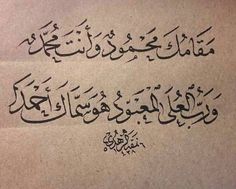 مَقَامُكَ مَحْمُودٌ وَأَنْتَ مُحَمَّدٌ
وَرَبُّ الْعُلَى الْمَعْبُودُ هُوَ سَمَّاكَ أَحْمَدَ